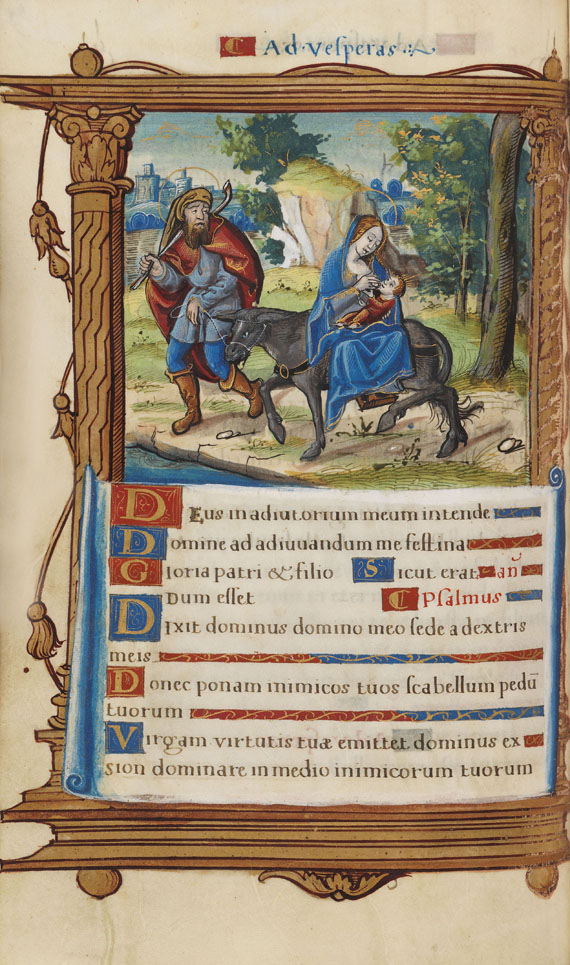 Ad Vesperas
Deus in adiutorium meum intende
Domine ad adiuuandum me festina
Gloria patri & filio Sicut erat añ
Dum esset Psalmus
Dixit dominus domino meo sede a dextris
meis
Donec ponam inimicos tuos scabellum pedū
tuorum
Virgam virtutis tuæ emittet dominus ex
sion dominare in medio inimicorum tuorum